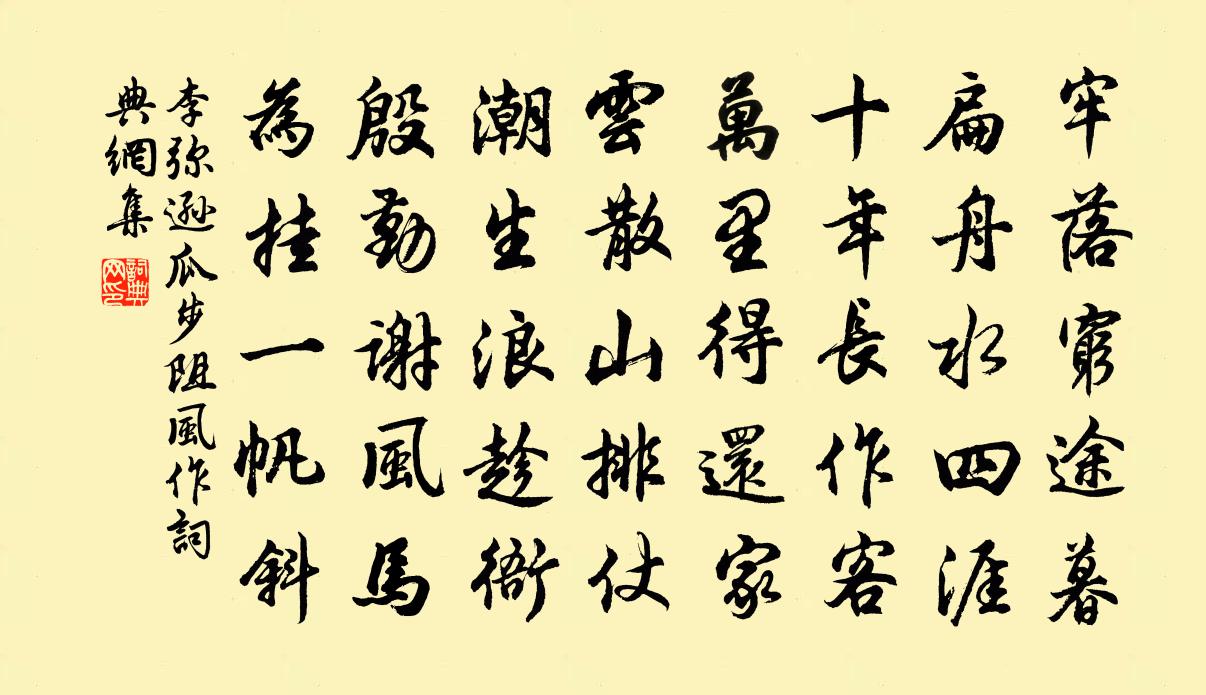 牢落窮途暮
扁舟水四涯
十年長作客
萬里得還家
雲散山排仗
潮生浪趁衙
殷勤謝風馬
為挂一帆斜
李弥遜瓜步阻風作詞
典網集
詞典
网印